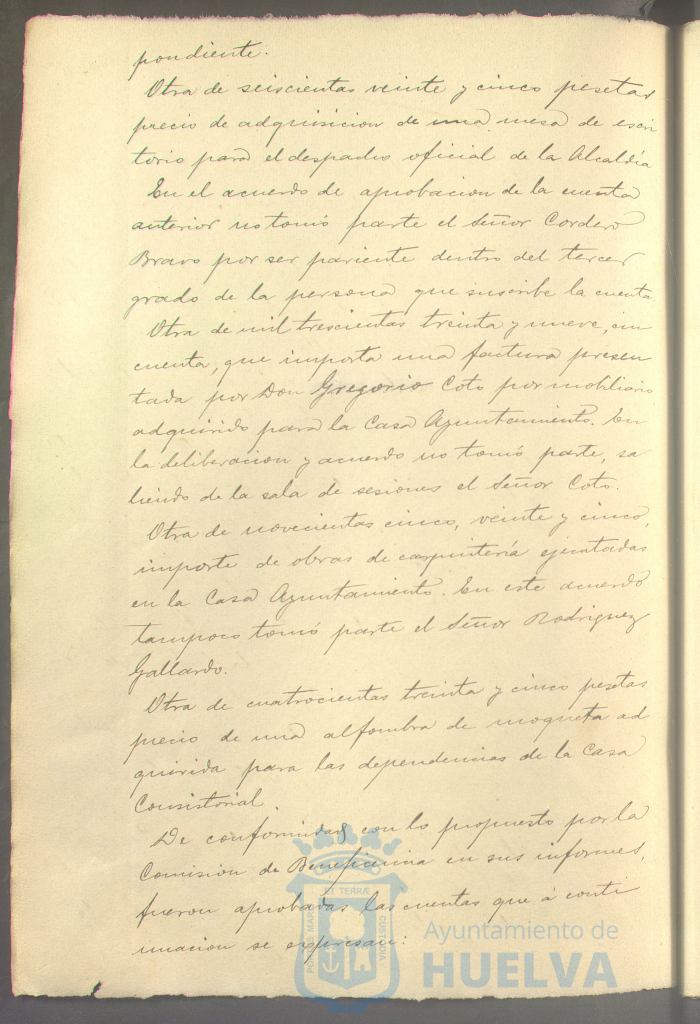 pondiente.
Otra de seiscientas veinte y cinco pesetas
precio de adquisicion de una mesa de escri
torio para el despacho oficial de la Alcaldía
En el acuerdo de aprobacion de la cuenta
anterior no tomó parte el Señor Cordero
Bravo por ser pariente dentro del tercer
grado de la persona que suscribe la cuenta.
Otra de mil trescientas treinta y nueve, cin
cuenta, que importa una factura presen
tada por Don Gregorio Coto por mobiliario
adquirido para la Casa Ayuntamiento. En
la deliberacion y acuerdo no tomó parte, sa
liendo de la sala de sesiones el Señor Coto.
Otra de novecientas cinco, veinte y cinco,
importe de obras de carpintería ejecutadas
en la Casa Ayuntamiento. En este acuerdo
tampoco tomó parte el Señor Rodriguez
Gallardo.
Otra de cuatrocientas treinta y cinco pesetas
precio de una alfombra de moqueta ad
quirida para las dependencias de la Casa
Consistorial.
De conformidad con lo propuesto por la
Comision de Beneficencia en sus informes,
fueron aprobadas las cuentas que á conti
nuacion se expresan:
PORTUS MARIS ET TERRÆ CUSTODIA
Ayuntamiento de
HUELVA